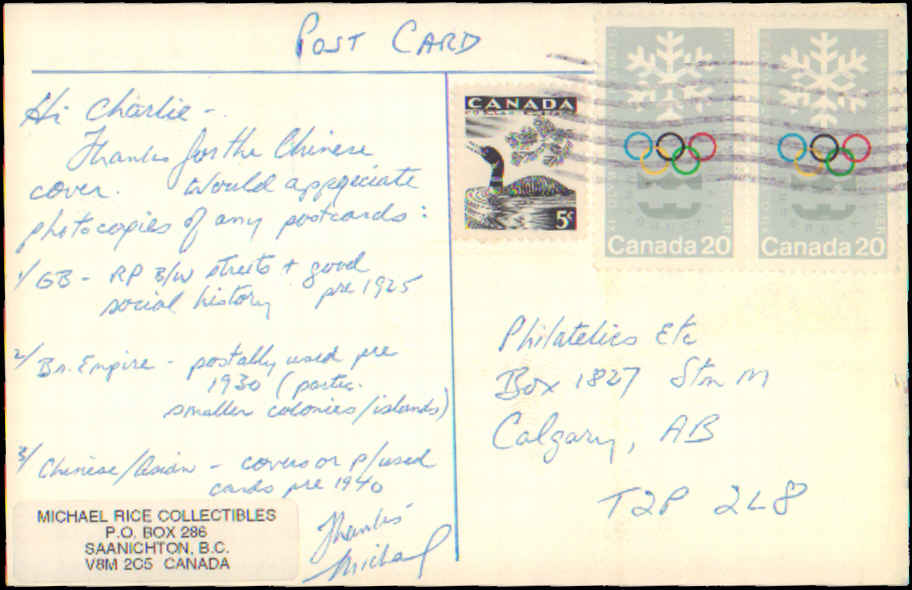 POST CARD
Hi Charlie -
Thanks for the Chinese
cover. Would appreciate
photocopies of any postcards:
1/ GB - RP B/W streets + good
social history pre 1925
2/ Br. Empire - postally used pre
1930 (partic.
smaller colonies/islands)
3/ Chinese/Asian - covers or p/used
cards pre 1940
Thanks
Michael
MICHAEL RICE COLLECTIBLES
P.O. BOX 286
SAANICHTON, B.C.
V8M 2C5 CANADA
CANADA
5¢
Canada 20
Canada 20
Philatelics Etc
Box 1827 Stn M
Calgary, AB
T2P 2L8